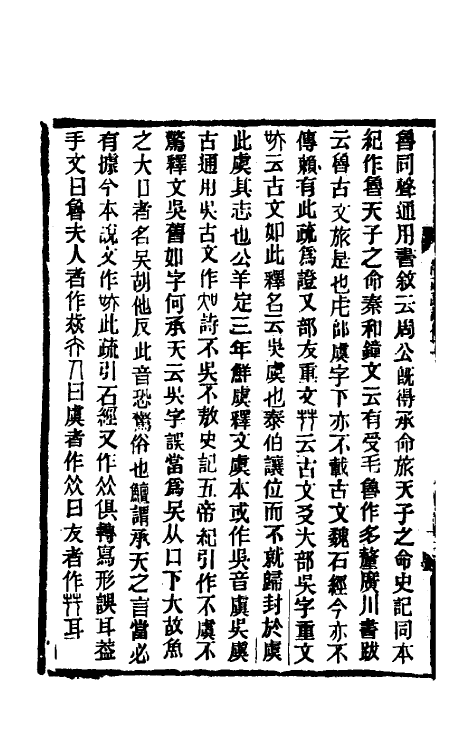 魯同聲通用書敘云周公旣得承命旅天子之命史記同本
紀作魯天子之命秦和鐘文云有受毛魯作多釐廣川書跋
云魯古文旅是也虍部虞字下亦不載古文魏石經今亦不
傳賴有此疏爲證又部友重文艸云古文㕛大部吳字重文
云古文如此釋名云吳虞也泰伯讓位而不就歸封於虞
此虞其志也公羊定三年鮮虞釋文虞本或作吳音虞吳虞
古通用吳古文作詩不吳不敖史記五帝紀引作不虞不
驚釋文吳舊如字何承天云吳字誤當爲吴从口下大故魚
之大口者名吴胡化反此音恐驚俗也鱣謂承天之言當必
有據今本說文作此疏引石經又作㒭俱轉寫形誤耳葢
手文曰魯夫人者作曰虞者作㒭曰友者作艸耳